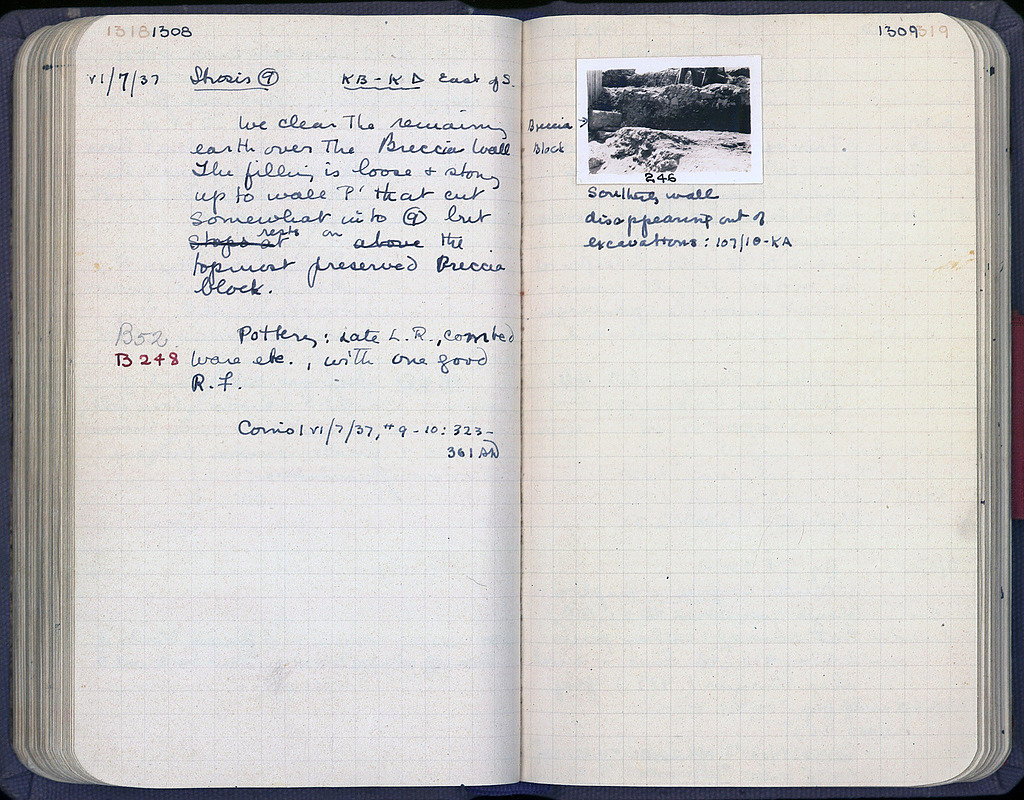 1318 1308
VI/7/37 Thosis 9 KB-KΔ East of S.
We clear the remaining
earth over the Breccia wall
The filling is loose & stony
up to wall 'P' that cut
somewhat into 9 but
stops at rests on above the
topmost preserved Breccia
block.
B52
B 248
Pottery: Late L.R., combed
ware etc., with one good
R.F.
Coins VI/7/37, #9-10: 323-
361
1309 1319
Breccia
Block
246
Southern wall
disappearing out of
excavations: 107/10-KA